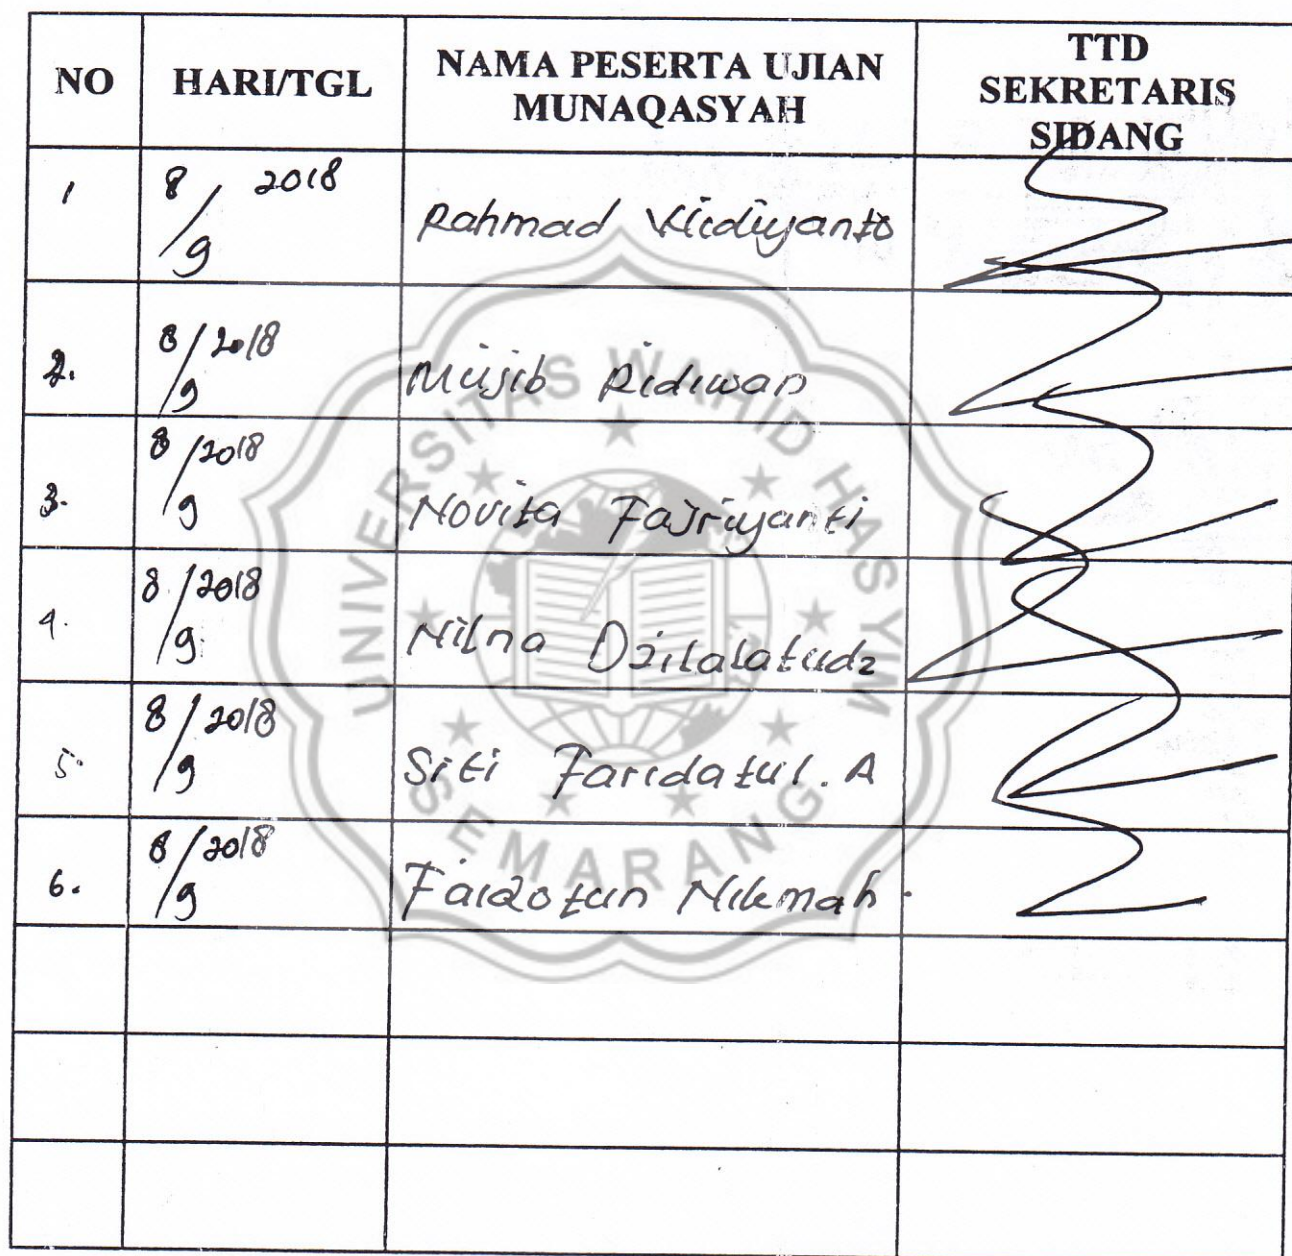 NO HARI/TGL NAMA PESERTA UJIAN MUNAQASYAH TTD SEKRETARIS SIDANG
1 8/9 2018 Rahmad
2. 8/9 2018 Mujib Ridiwan
3. 8/9 2018 Novita Fajriyanti
4. 8/9 2018 Nilna Dzilalatudz
5. 8/9 2018 Siti Faridatul. A
6. 8/9 2018 Faiqotun Nikmah.
UNIVERSITAS WAHID HASYIM
SEMARANG